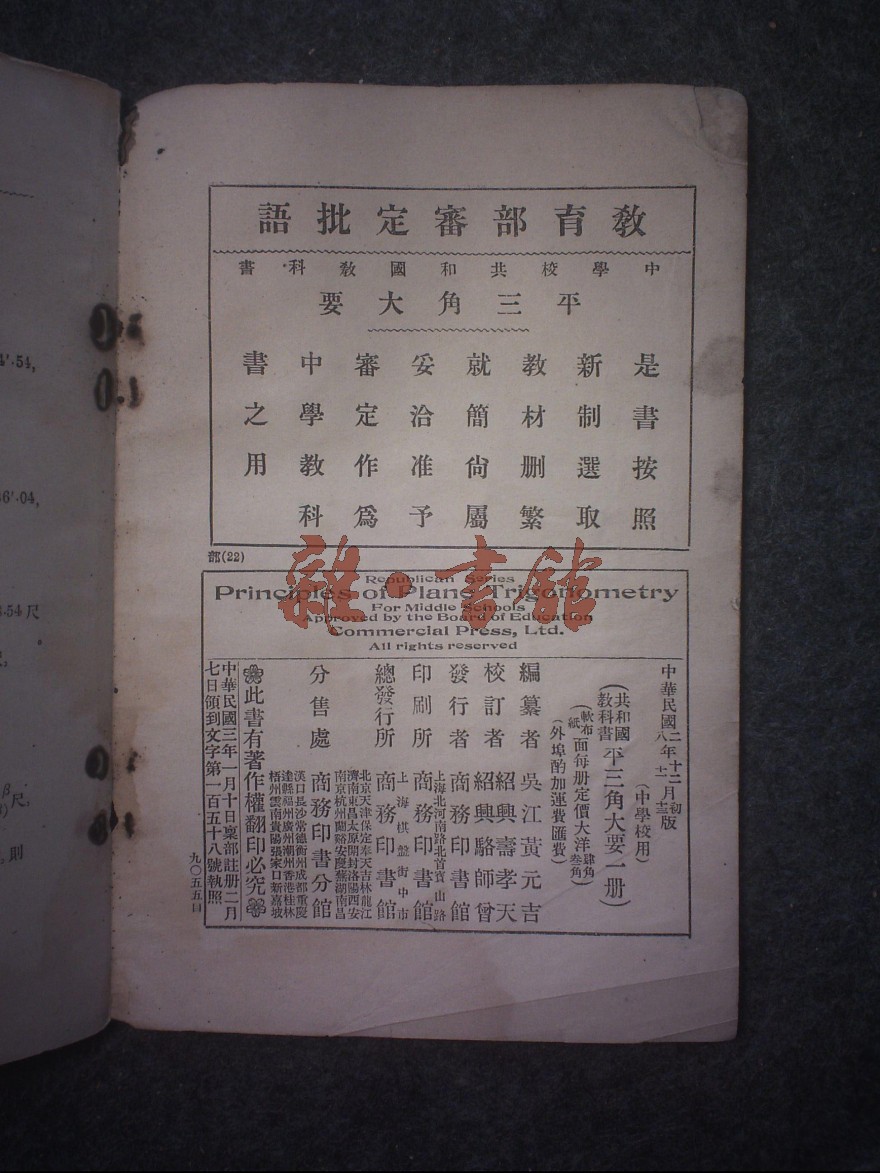 教育部審定批語
中學校共和國教科書
平三角大要
是書按照
新制選取
教材刪繁
就簡尙屬
妥洽准予
審定作爲
中學教科
書之用
部(22)
雜·書館
Republican Series
Principles of Plane Trigonometry
For Middle Schools
Approved by the Board of Education
Commercial Press, Ltd.
All rights reserved
中華民國二年十二月初版
八年十二月
(中學校用)
(共和國教科書 平三角大要一册)
(軟布面每册定價大洋肆角)
紙 叁角
(外埠酌加運費匯費)
編纂者 吳江黃元吉
校訂者 紹興壽孝天
紹興駱師曾
發行者 商務印書館
上海北河南路北首寶山路
印刷所 商務印書館
上海棋盤街中市
總發行所 商務印書館
分售處 商務印書分館
北京天津保定奉天吉林龍江
濟南東昌太原開封洛陽西安
南京杭州蘭谿安慶蕪湖南昌
漢口長沙常德衡州成都重慶
達縣福州廣州潮州香港桂林
梧州雲南貴陽張家口新嘉坡
此書有著作權翻印必究
中華民國三年一月十日稟部註册二月
七日領到文字第一百五十八號執照
九〇五五口
4′.54,
6′.04,
.54尺
尺,
則